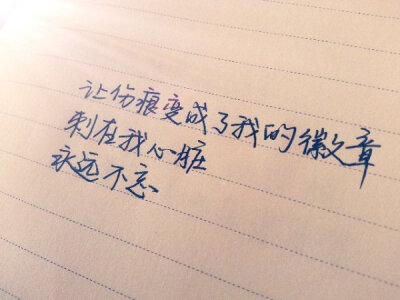 让伤痕变成了我的徽章
刺在我心脏
永远不忘